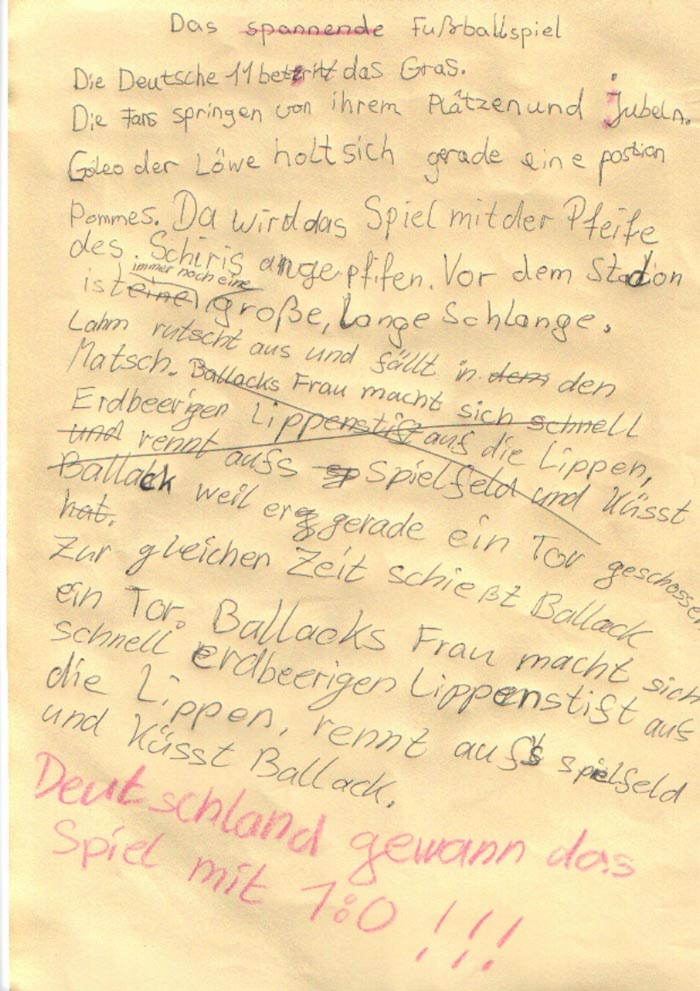 Das spannende Fußballspiel
Die Deutsche 11 betritt das Gras.
Die Fans springen von ihrem Plätzen und Jubeln.
Goleo der Löwe holt sich gerade eine postion
Pommes. Da wird das Spiel mit der Pfeife
des Schiris angepfifen. Vor dem Stadion
immer noch eine
ist eine große, lange Schlange.
Lahm rutscht aus und fällt in dem den
Matsch. Ballacks Frau macht sich schnell
Erdbeerigen Lippenstift auf die Lippen,
und rennt aufs Spielfeld und Küsst
Ballack weil er gerade ein Tor geschossen
hat.
Zur gleichen Zeit schießt Ballack
ein Tor. Ballacks Frau macht sich
schnell erdbeerigen Lippenstift auf
die Lippen, rennt auf's spielfeld
und Küsst Ballack.
Deutschland gewann das
Spiel mit 1:0 !!!